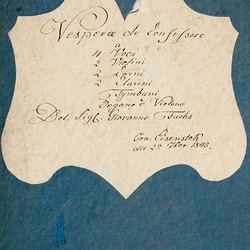 Vesperæ de Confessore
4 Voci
2 Violini
2 Corni
2 Clarini
Tympani
Organo e Violone
Del Sig. Giovanno Fuchs
Joa. Eisenstok
die 29
1845.